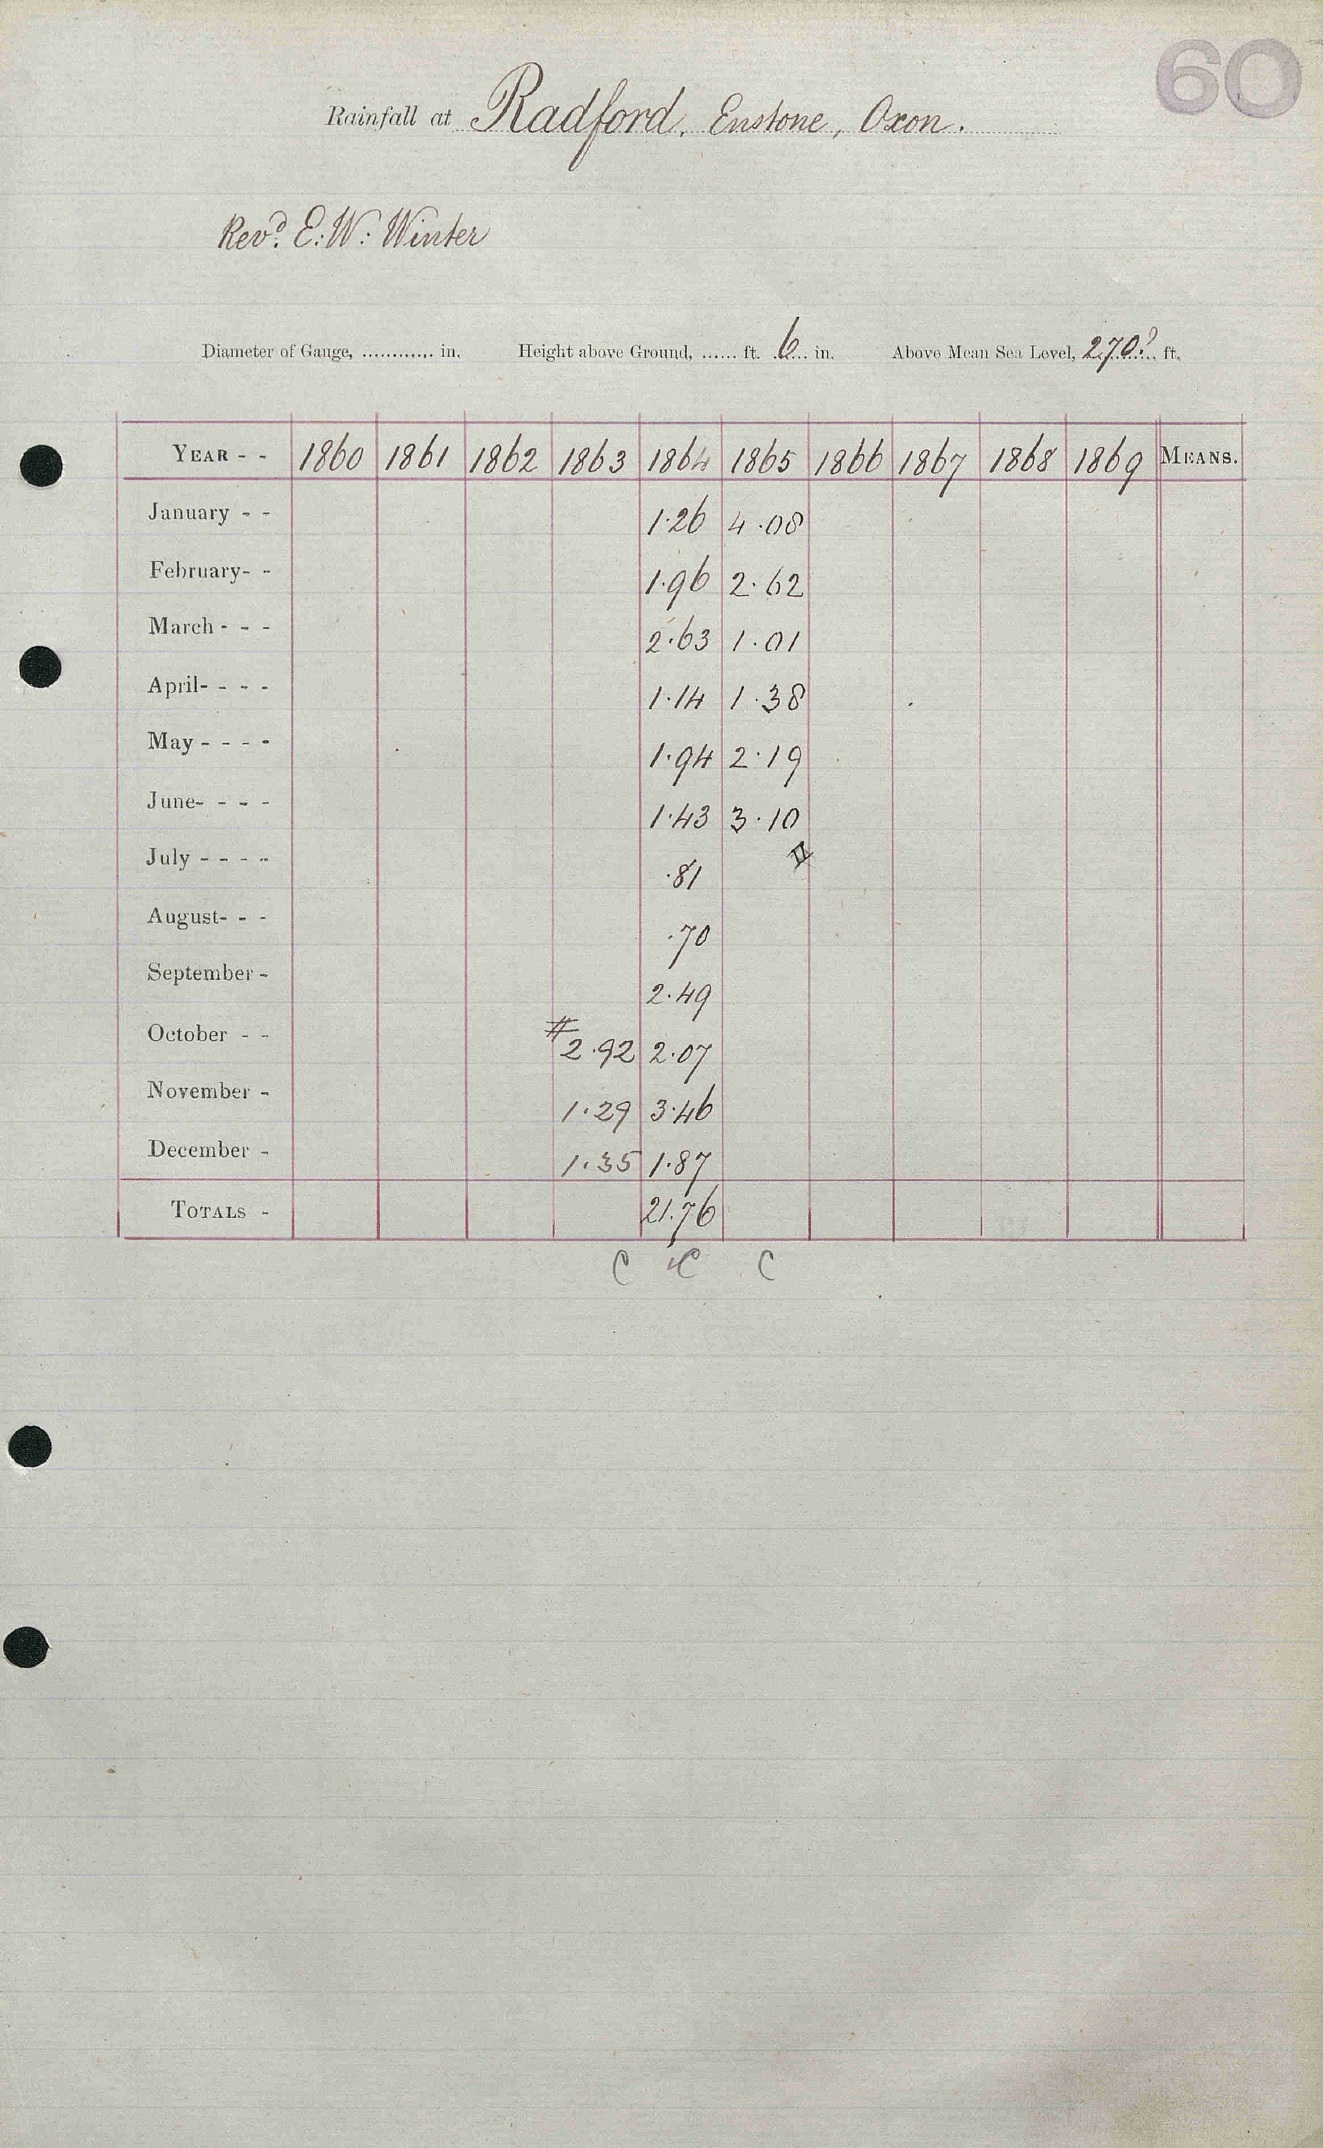 60
Rainfall at Radford, Enstone, Oxon.
Revd. E: W: Winter
Diameter of Gauge, ............ in. Height above Ground, ...... ft. 6 in. Above Mean Sea Level, 270? ft.
YEAR - - 1860 1861 1862 1863 1864 1865 1866 1867 1868 1869 MEANS.
January - - 1.26 4.08
February- - 1.96 2.62
March - - - 2.63 1.01
April- - - - 1.14 1.38
May - - - - 1.94 2.19
June- - - - 1.43 3.10
July - - - - .81
August- - - .70
September - 2.49
October - - 2.92 2.07
November - 1.29 3.46
December - 1.35 1.87
TOTALS - 21.76
C C C